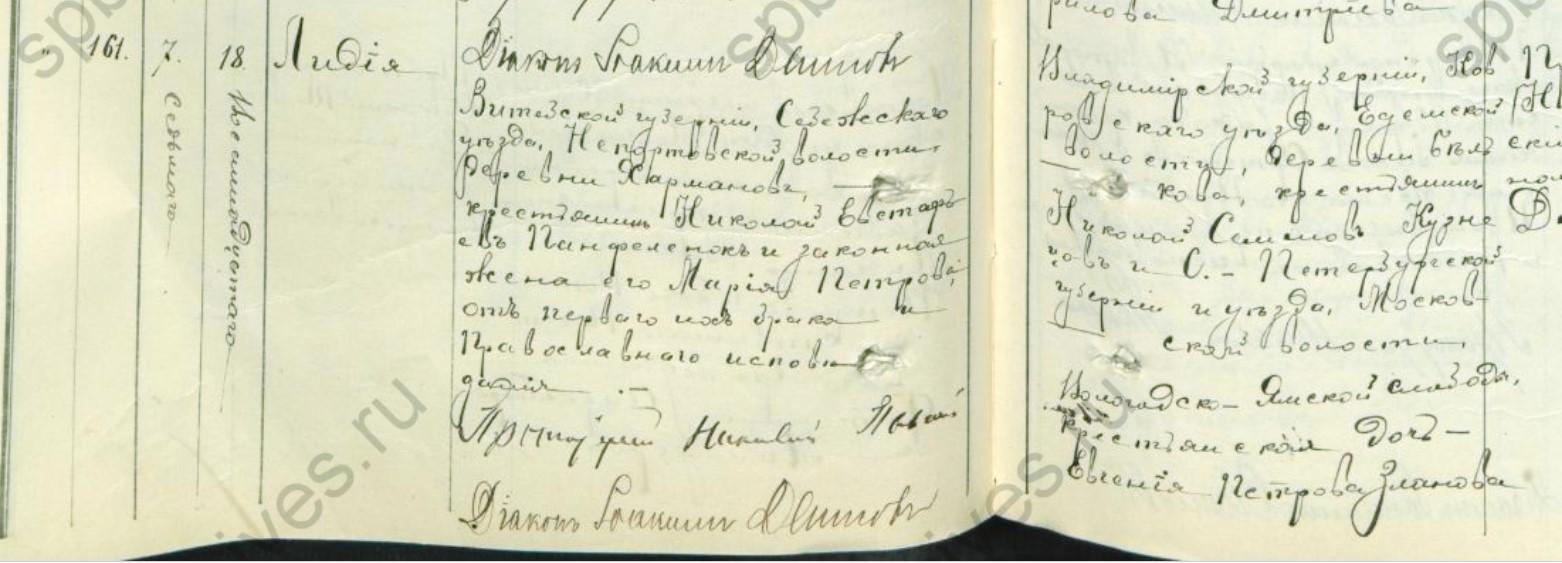 " 161. 7. 18. Лидія
Седьмаго
Восемнадцатаго
Діаконъ Іоакимъ
Витебской губерніи, Себежскаго
уѣзда, Непоротовской волости,
деревни Харманова,
крестьянинъ Николай Евстафь
евъ Панфеленокъ и законная
жена его Марія Петрова,
отъ перваго ихъ брака и
Православнаго исповѣ
данія. –
Николай
Діаконъ Іоакимъ
рилова Дмитріева
Владимірской губерніи, Ков
ровскаго уѣзда, Едемской
волости, деревни Бѣль
кова, крестьянинъ
Николай Семеновъ Кузне
цовъ и С.-Петербургской
губерніи и уѣзда, Москов-
ской волости,
Вологодско-Ямской слободы,
крестьянская дочь –
Евгенія Петрова
ives.ru
ives.ru